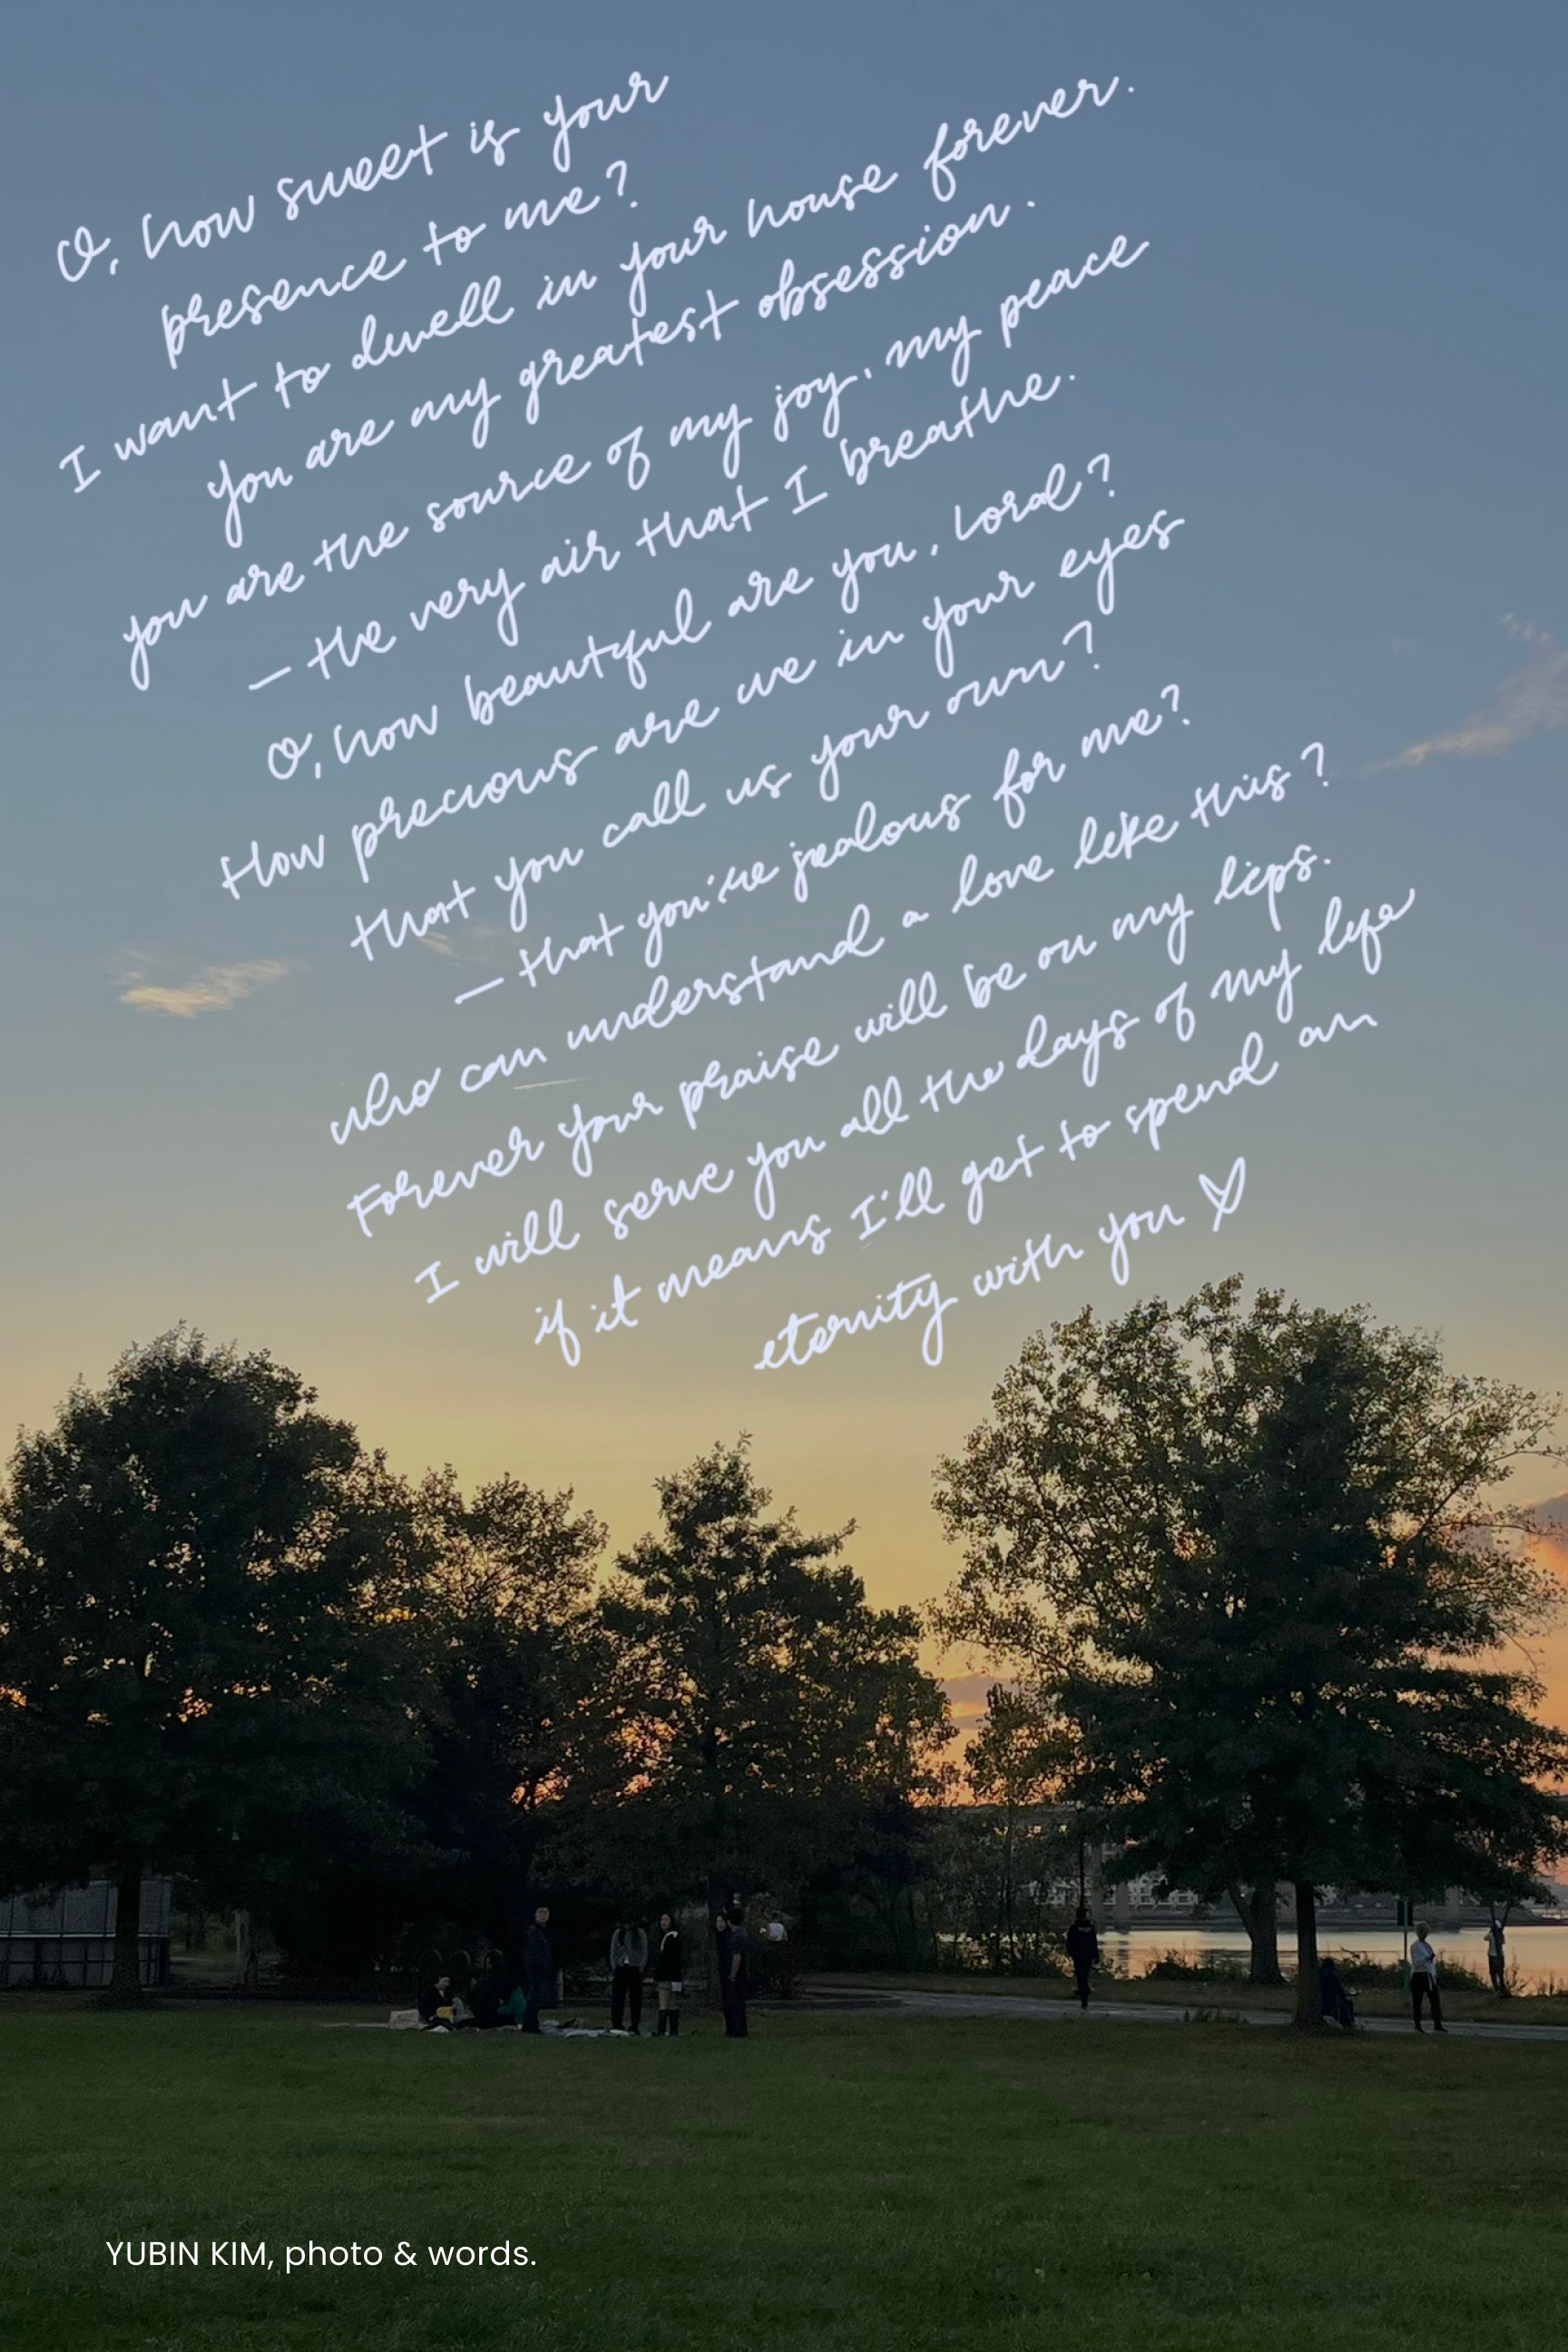 O, how sweet is your
presence to me?
I want to dwell in your house forever.
You are my greatest obsession.
you are the source of my joy, my peace
– the very air that I breathe.
O, how beautiful are you, Lord?
How precious are we in your eyes
that you call us your own?
– that you're jealous for me?
who can understand a love like this?
Forever your praise will be on my lips.
I will serve you all the days of my life
if it means I'll get to spend an
eternity with you
YUBIN KIM, photo & words.